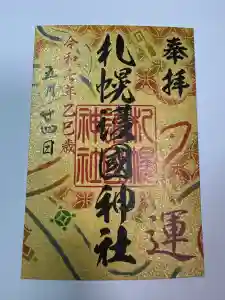 奉拝
運
札幌護國神社
札幌
神社
令和七年乙巳歳
五月廿四日